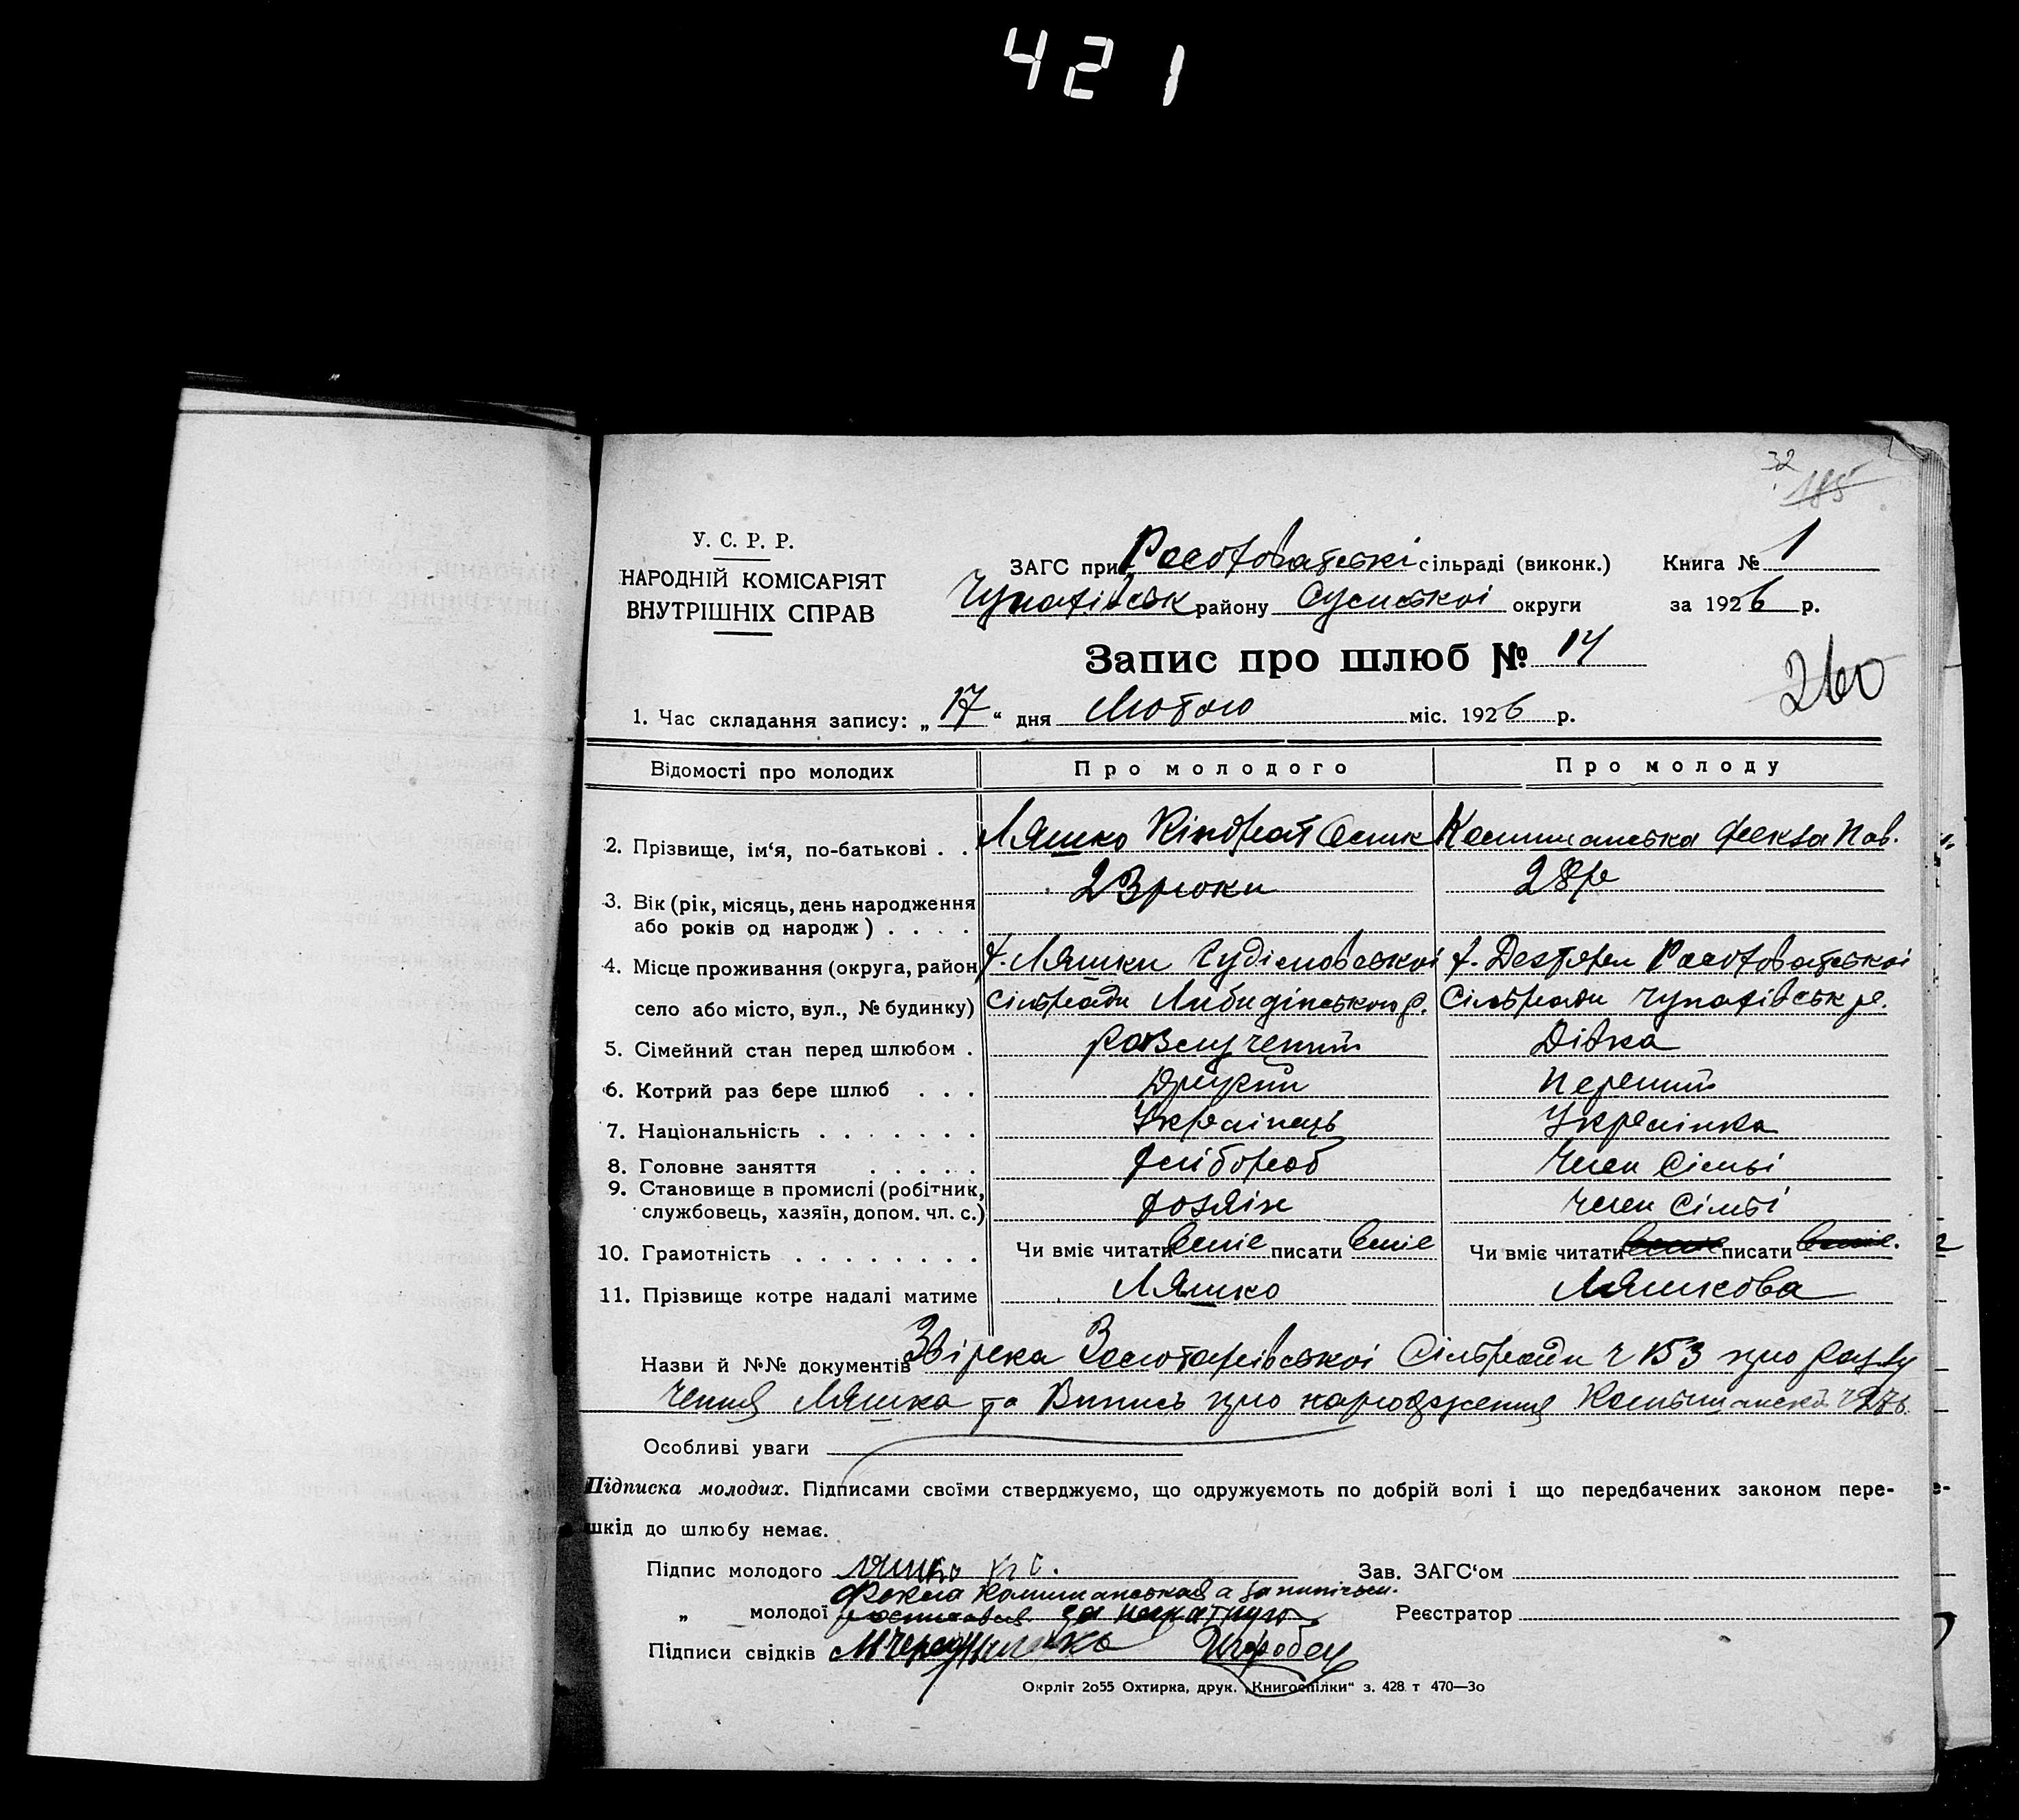 421
32
185
У. С. Р. Р.
НАРОДНІЙ КОМІСАРІЯТ
ВНУТРІШНІХ СПРАВ
ЗАГС при сільраді (виконк.) Книга № 1
Чупахівськ району Сумськоі округи за 1926 р.
Запис про шлюб № 14
260
1. Час складання запису: „ 17 “ дня Лютого міс. 1926 р.
Відомості про молодих Про молодого Про молоду
2. Прізвище, ім‘я, по-батькові . . Ляшко Кіндрат Семк Пав.
23 роки 28 р
3. Вік (рік, місяць, день народження
або років од народж) . . . .
4. Місце проживання (округа, район х. Ляшки х. Дехтяри
село або місто, вул., № будинку) Сільради Сільради Чупахівськ р.
5. Сімейний стан перед шлюбом . розлучений Дівка
6. Котрий раз бере шлюб . . . Другий Перший
7. Національність . . . . . . . Украінець Украінка
8. Головне заняття . . . . . хлібороб член сімьі
9. Становище в промислі (робітник,
службовець, хазяїн, допом. чл. с.) хозяін член сімьі
10. Грамотність . . . . . . . . Чи вміє читати вміє писати вміє Чи вміє читати писати
11. Прізвище котре надалі матиме Ляшко Ляшкова
Назви й №№ документів Сільради ч 153 про разлу
чення Ляшка та Випись про народження
Особливі уваги
Підписка молодих. Підписами своїми стверджуємо, що одружуємоть по добрій волі і що передбачених законом пере-
шкід до шлюбу немає.
Підпис молодого Зав. ЗАГС‘ом
„ молодої за Реєстратор
Підписи свідків
Окрліт 2о55 Охтирка, друк. „Книгоспілки“ з. 428 т 470—3о